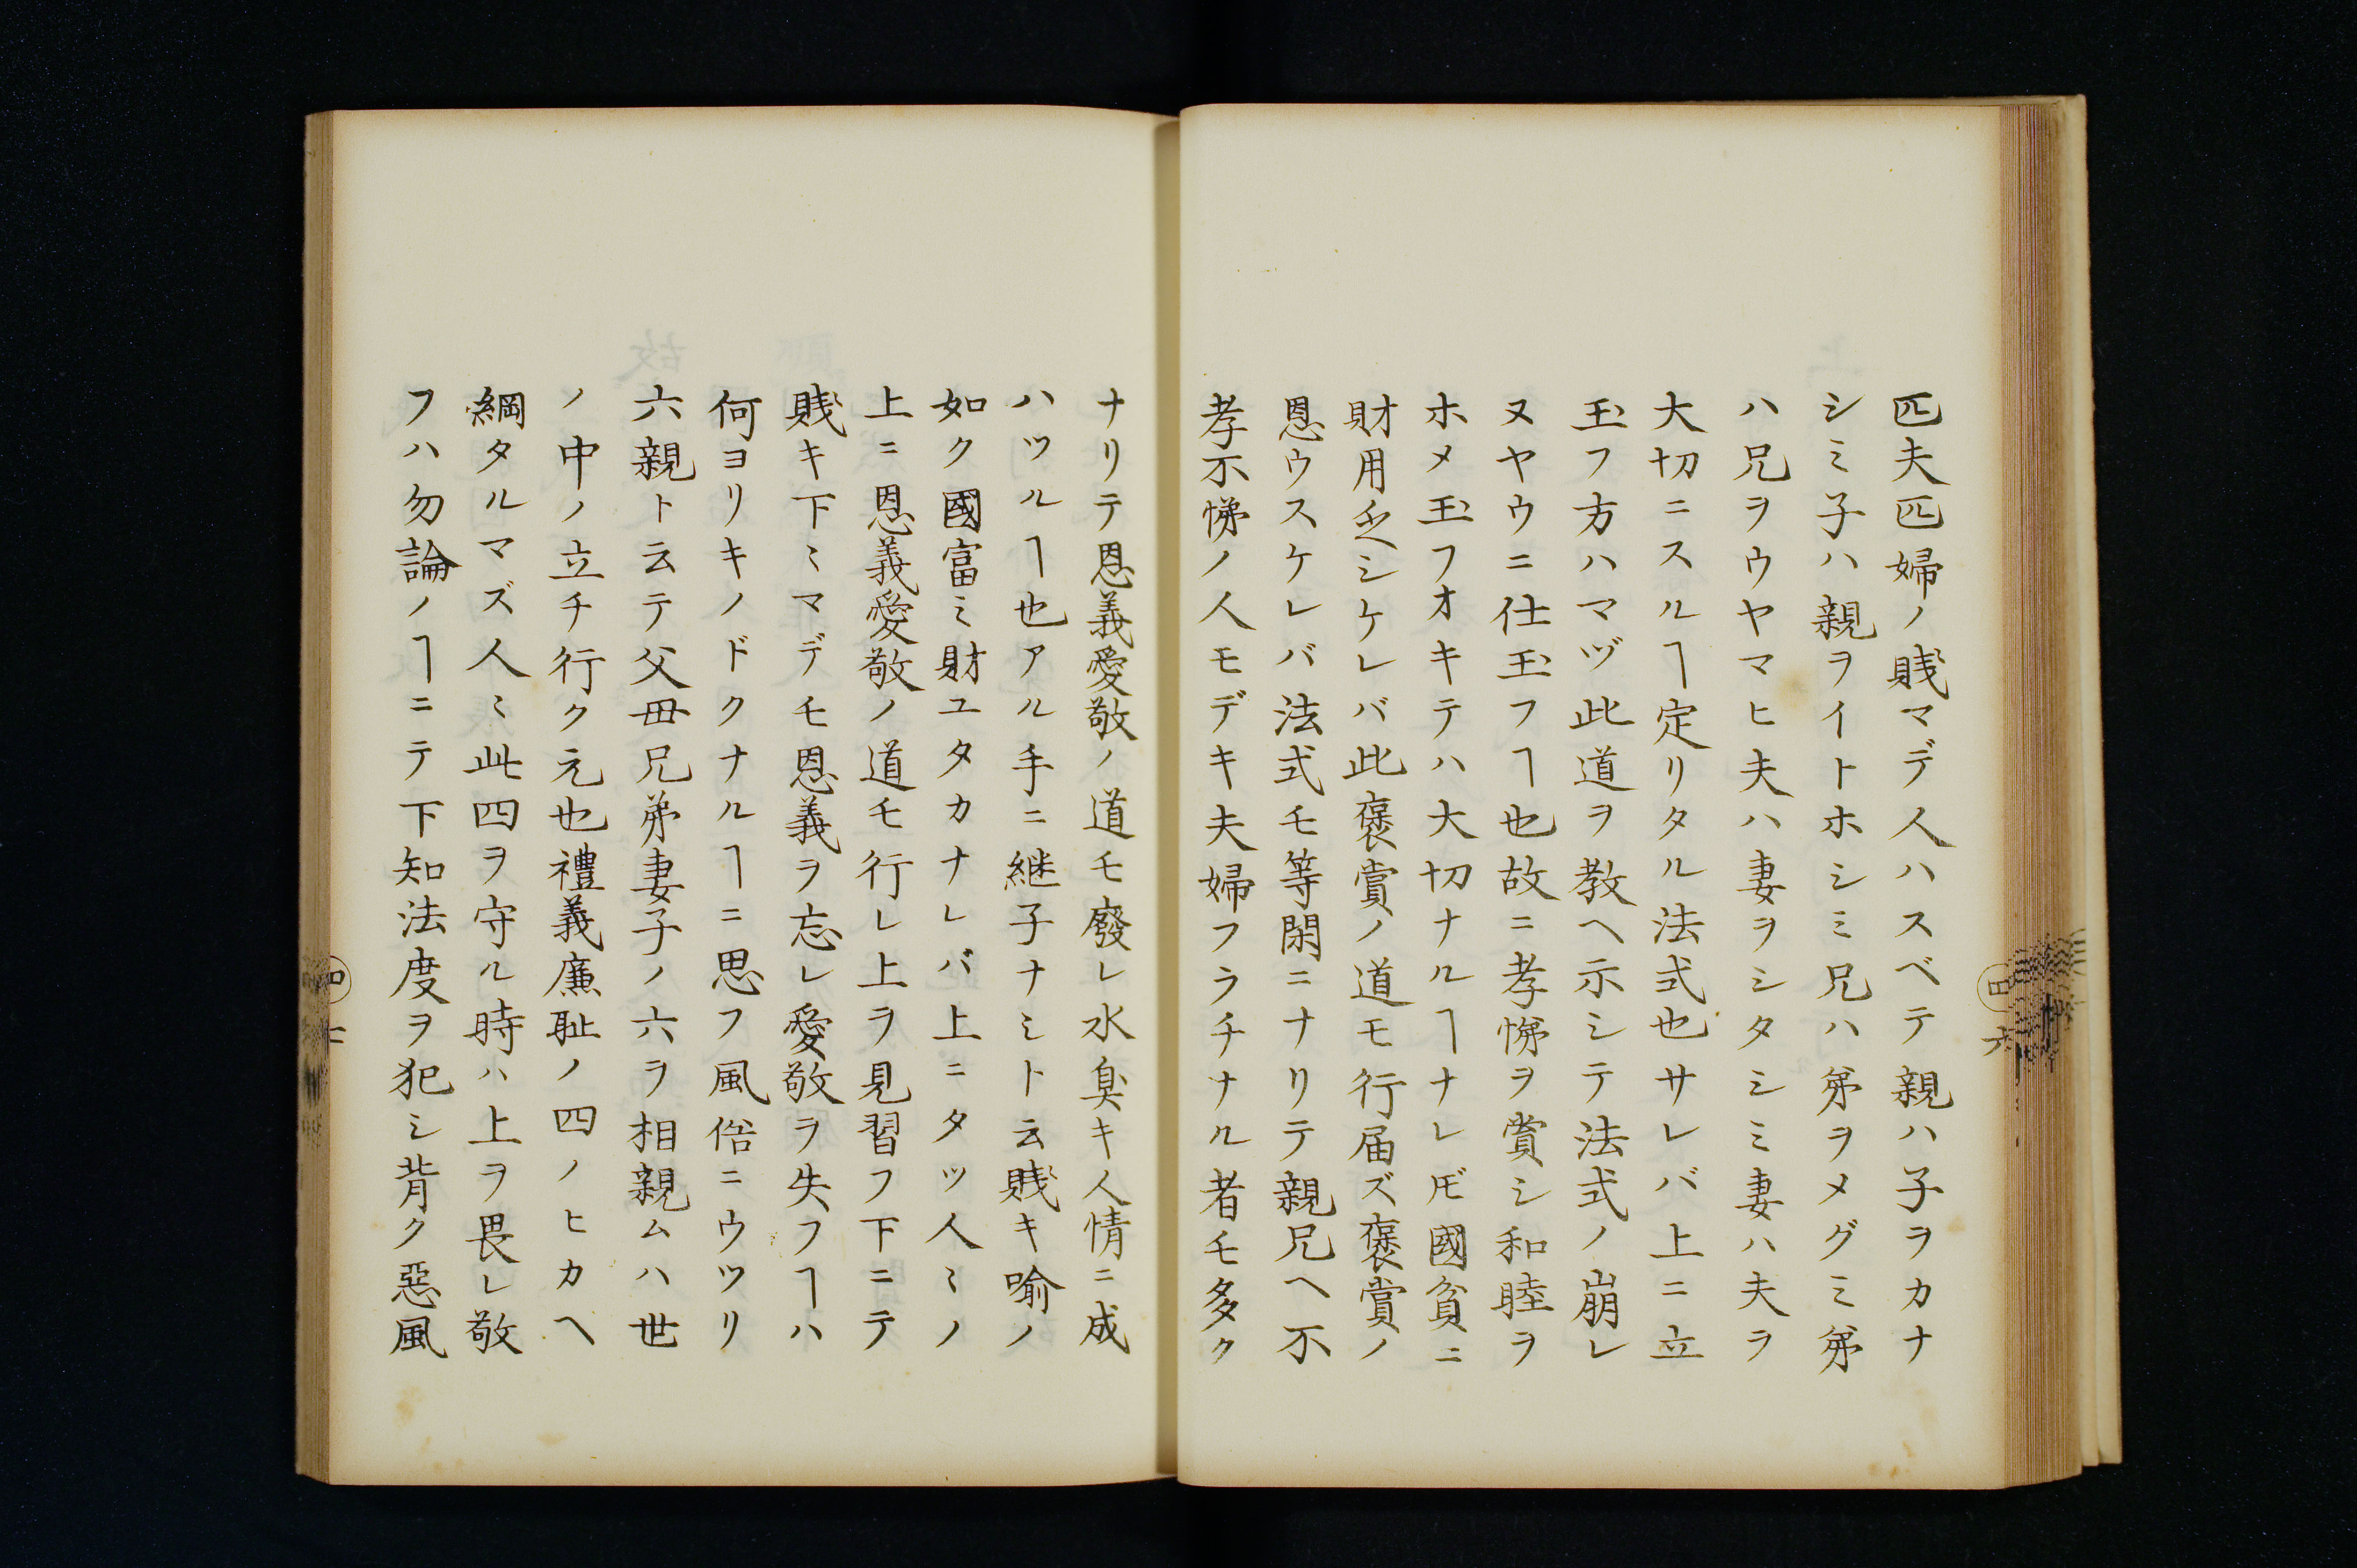 匹夫匹婦ノ賎マデ人ハスベテ親ハ子ヲカナ
シミ子ハ親ヲイトホシミ兄ハ弟ヲメグミ弟
ハ兄ヲウヤマヒ夫ハ妻ヲシタシミ妻ハ夫ヲ
大切ニスルヿ定リタル法式也サレバ上ニ立
玉フ方ハマヅ此道ヲ教ヘ示シテ法式ノ崩レ
ヌヤウニ仕玉フヿ也故ニ孝悌ヲ賞シ和睦ヲ
ホメ玉フオキテハ大切ナルヿナレ𪜈國貧ニ
財用乏シケレバ此褒賞ノ道モ行届ズ褒賞ノ
恩ウスケレバ法式モ等閑ニナリテ親兄ヘ不
孝不悌ノ人モデキ夫婦フラチナル者モ多ク
ナリテ恩義愛敬ノ道モ廢レ水臭キ人情ニ成
ハツルヿ也アル手ニ継子ナシト云賎キ喩ノ
如ク國富ミ財ユタカナレバ上ニタツ人ミノ
上ニ恩義愛敬ノ道モ行レ上ヲ見習フ下ニテ
賎キ下ミマデモ恩義ヲ忘レ愛敬ヲ失フヿハ
何ヨリキノドクナルヿニ思フ風俗ニウツリ
六親ト云テ父母兄弟妻子ノ六ヲ相親ムハ世
ノ中ノ立チ行ク元也禮義廉耻ノ四ノヒカヘ
綱タルマズ人ミ此四ヲ守ル時ハ上ヲ畏レ敬
フハ勿論ノヿニテ下知法度ヲ犯シ背ク惡風
四 六
四 七